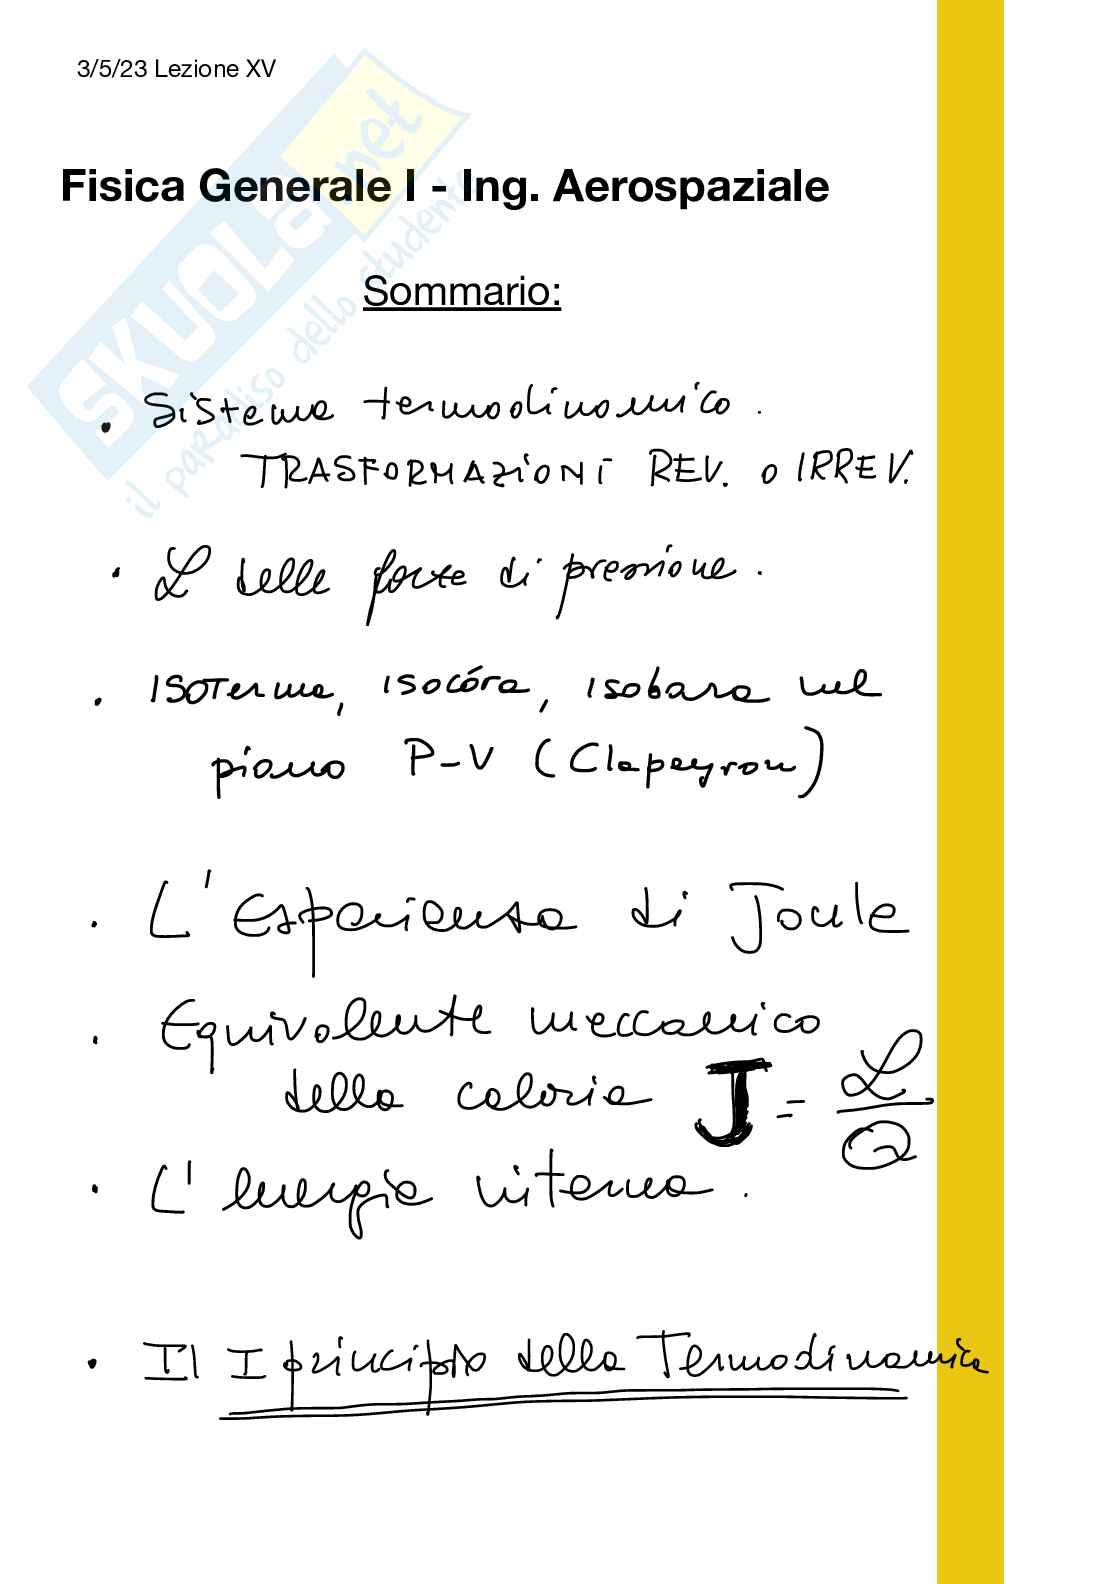 3/5/23 Lezione XV
Fisica Generale I - Ing. Aerospaziale
Sommario:
SKUOLA.net
il paradiso dello studente
• Sistema termodinamico.
TRASFORMAZIONI REV. o IRREV.
• L delle forze di pressione.
• ISOTerma, isocóra, isobara nel
piano P-V (Clapeyron)
• L'Esperienza di Joule
• Equivalente meccanico
della caloria J = L/Q
• L'energia interna.
• Il I principio della Termodinamica